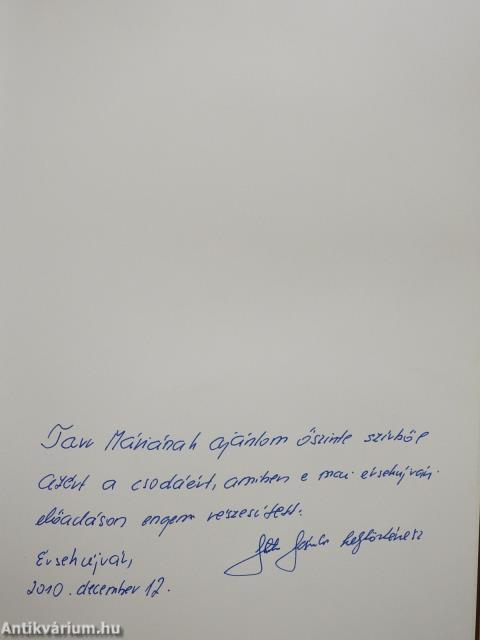 Tarr Máriának ajánlom őszinte szívből
azért a csodáért, amiben e mai érsekújvári
előadáson engem részesített.
Érsekújvár,
helytörténész
2010. december 12.
Antikvárium.hu